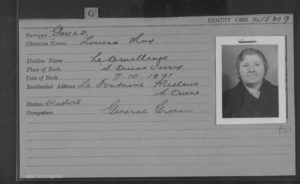 G
IDENTITY CARD No. 15309
Surname Gould
Christian Names Louisa May
Maiden Name Le Druillenec
Place of Birth S. Ouens Jersey
Date of Birth 7.10.1891
Residential Address La Fontaine Millais
S. Ouens
Status Widow
Occupation General Grocer